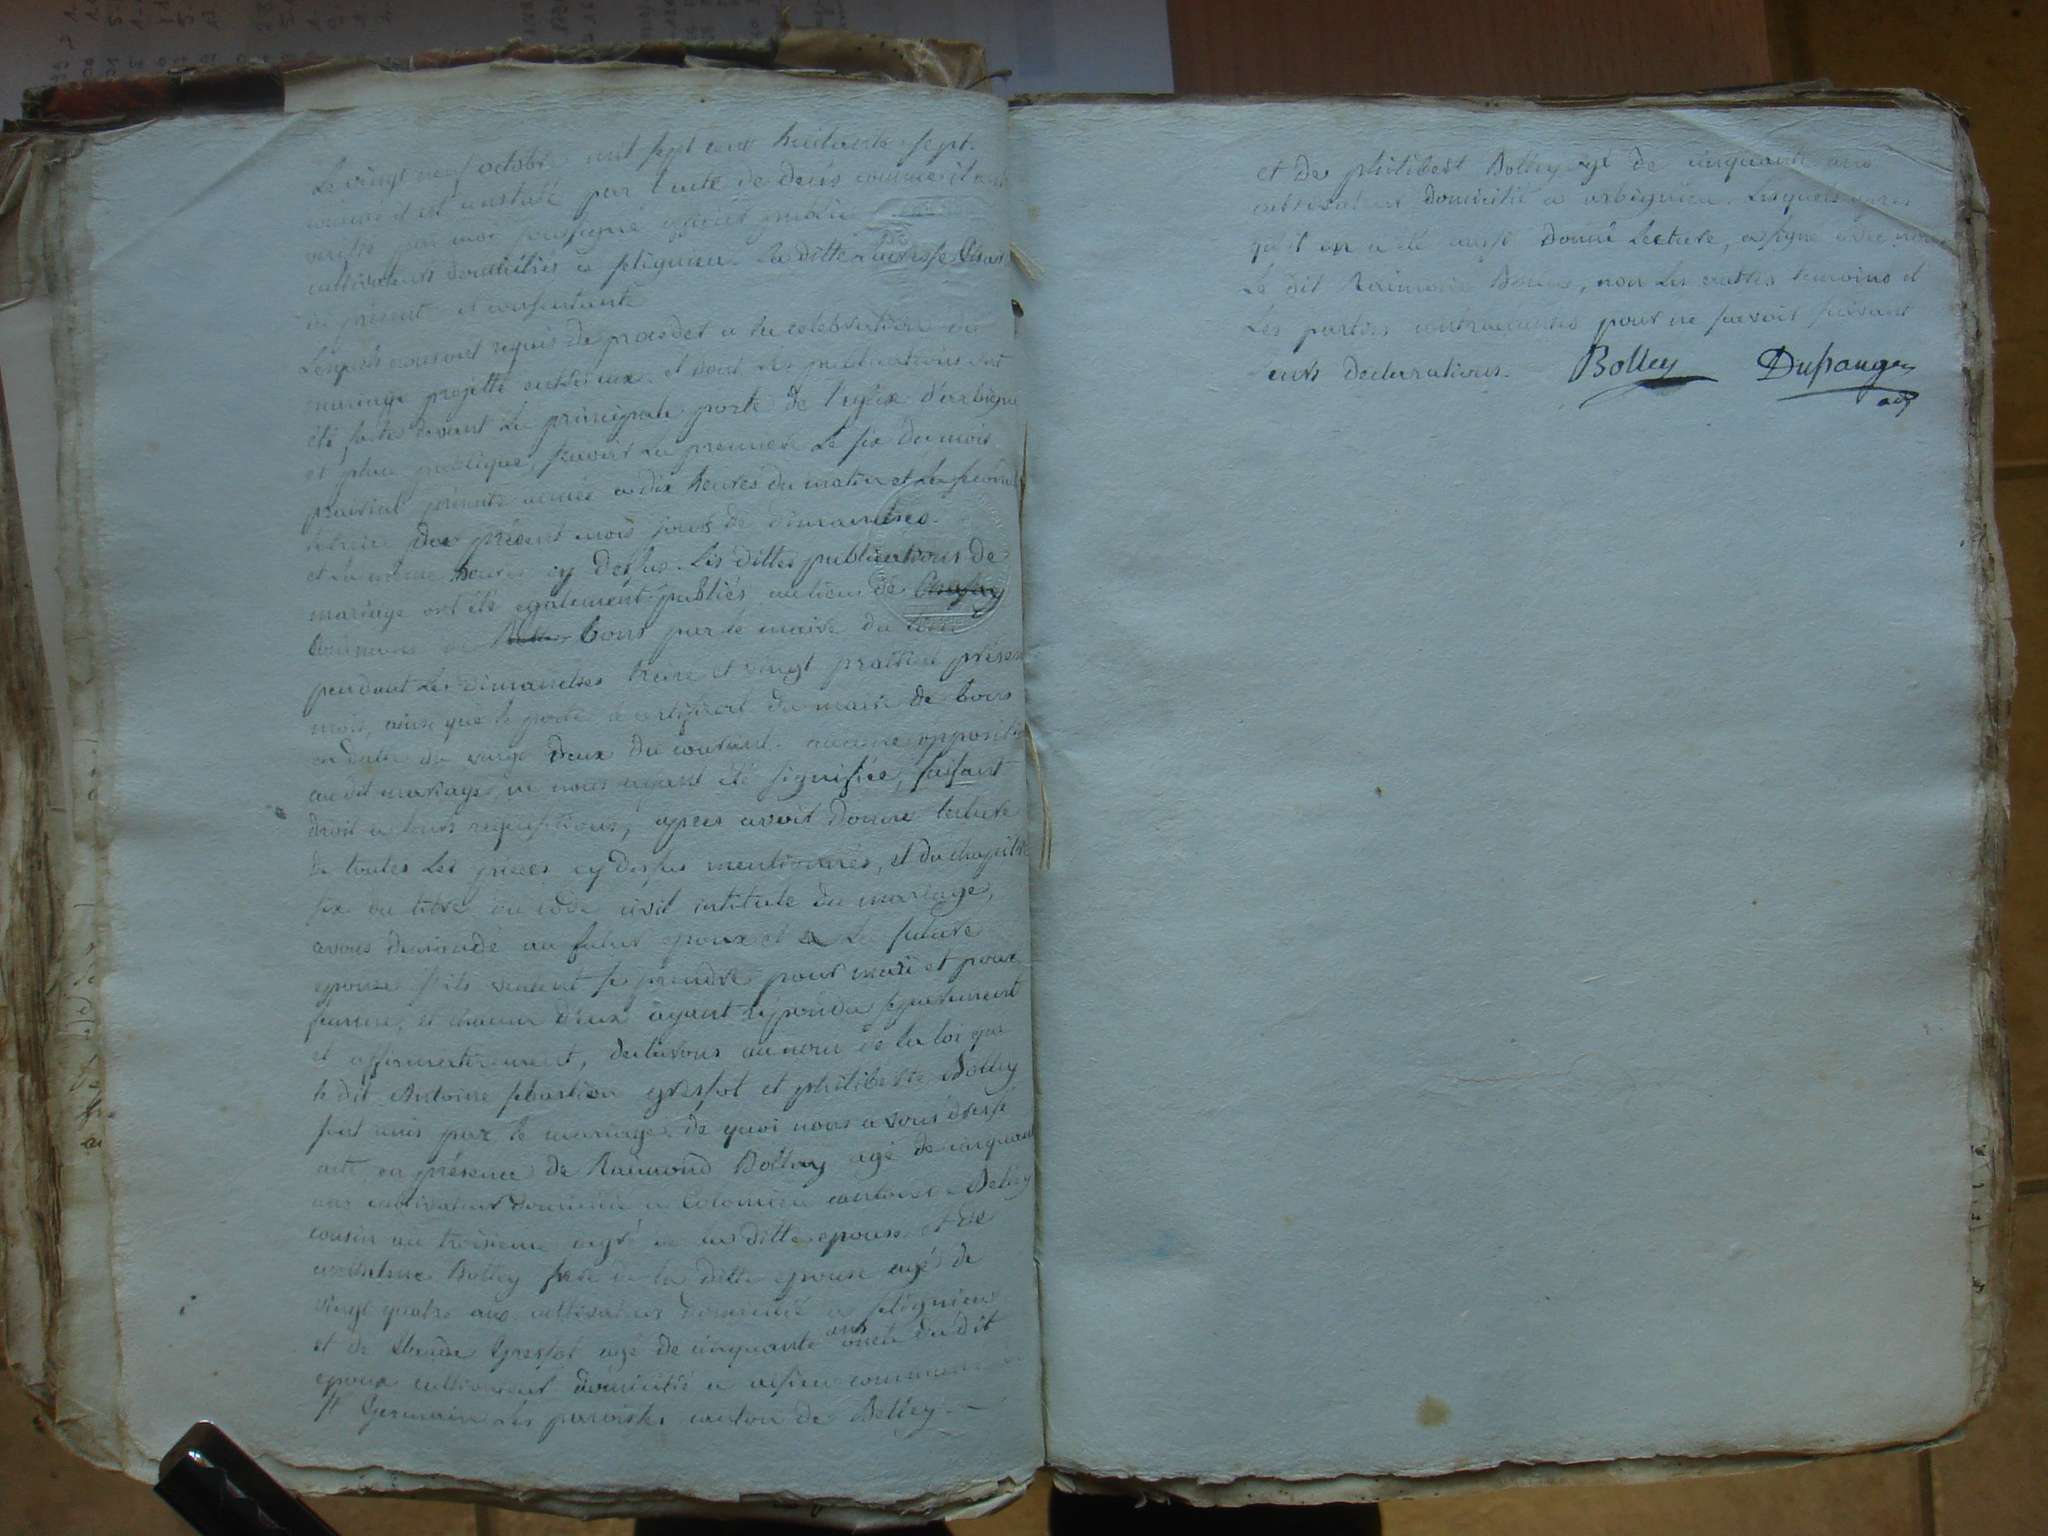 Le vingt neuf octobre mil sept cent huitante sept.
comme il est constaté par l'acte de decés comme il
par moi soussigné officier public
cultivateurs domiciliés a selignieu. La ditte
ici présent et consentante
Lesquels nous ont requis de proceder a la celebration du
mariage projetté entre eux, et dont les publications ont
été faites devant la principale porte de l'eglise d'arbignieu
et place publique, savoir la premiere le six du mois
prairial présente année a dix heures du matin et la seconde
du présent mois jours de dimanches.
et la même heure cy dessus. Les dittes publications de
mariage ont été egalement publiés au lieu de
commune de bons par le maire du lieu
pendant les dimanches treize et vingt prairial présent
mois, ainsi que le porte le certificat du maire de bons
en datte du vingt deux du courant. aucune opposition
au dit mariage ne nous ayant été signifiée, faisant
droit a leurs requisitions, apres avoir donné lecture
de toutes les pieces cy dessus mentionnés, et du chapitre
six du titre du code civil intitulé du mariage,
avons demandé au futur epoux et a la future
epouse s'ils veulent se prendre pour mari et pour
femme, et chacun d'eux ayant répondu séparement
et affirmativement, declarons au nom de la loi que
le dit Antoine sebastien gresfot et philiberte Bolley
sont unis par le mariage. de quoi nous avons dressé
acte en présence de Raimond Bolley agé de cinquante
ans cultivateur domicilié a Colomieu canton de Belley
cousin au troisieme degré de la ditte epouse et de
anthelme Bolley frere de la ditte epouse agé de
vingt quatre ans cultivateur domicilié a selignieu
et de Claude Gresfot agé de cinquante ans oncle du dit
epoux cultivateur domicilié a commune
st Germain les paroisses canton de Belley.
et de philibert Bolley agé de cinquante ans
cultivateur domicilié a arbignieu. Lesquels apres
qu'il en a été aussi donné lecture, a signé avec nous
Le dit Raimond Bolley, non les autres temoins et
les parties contractantes pour ne savoir suivant
leurs declarations. Bolley Dufranger
adj